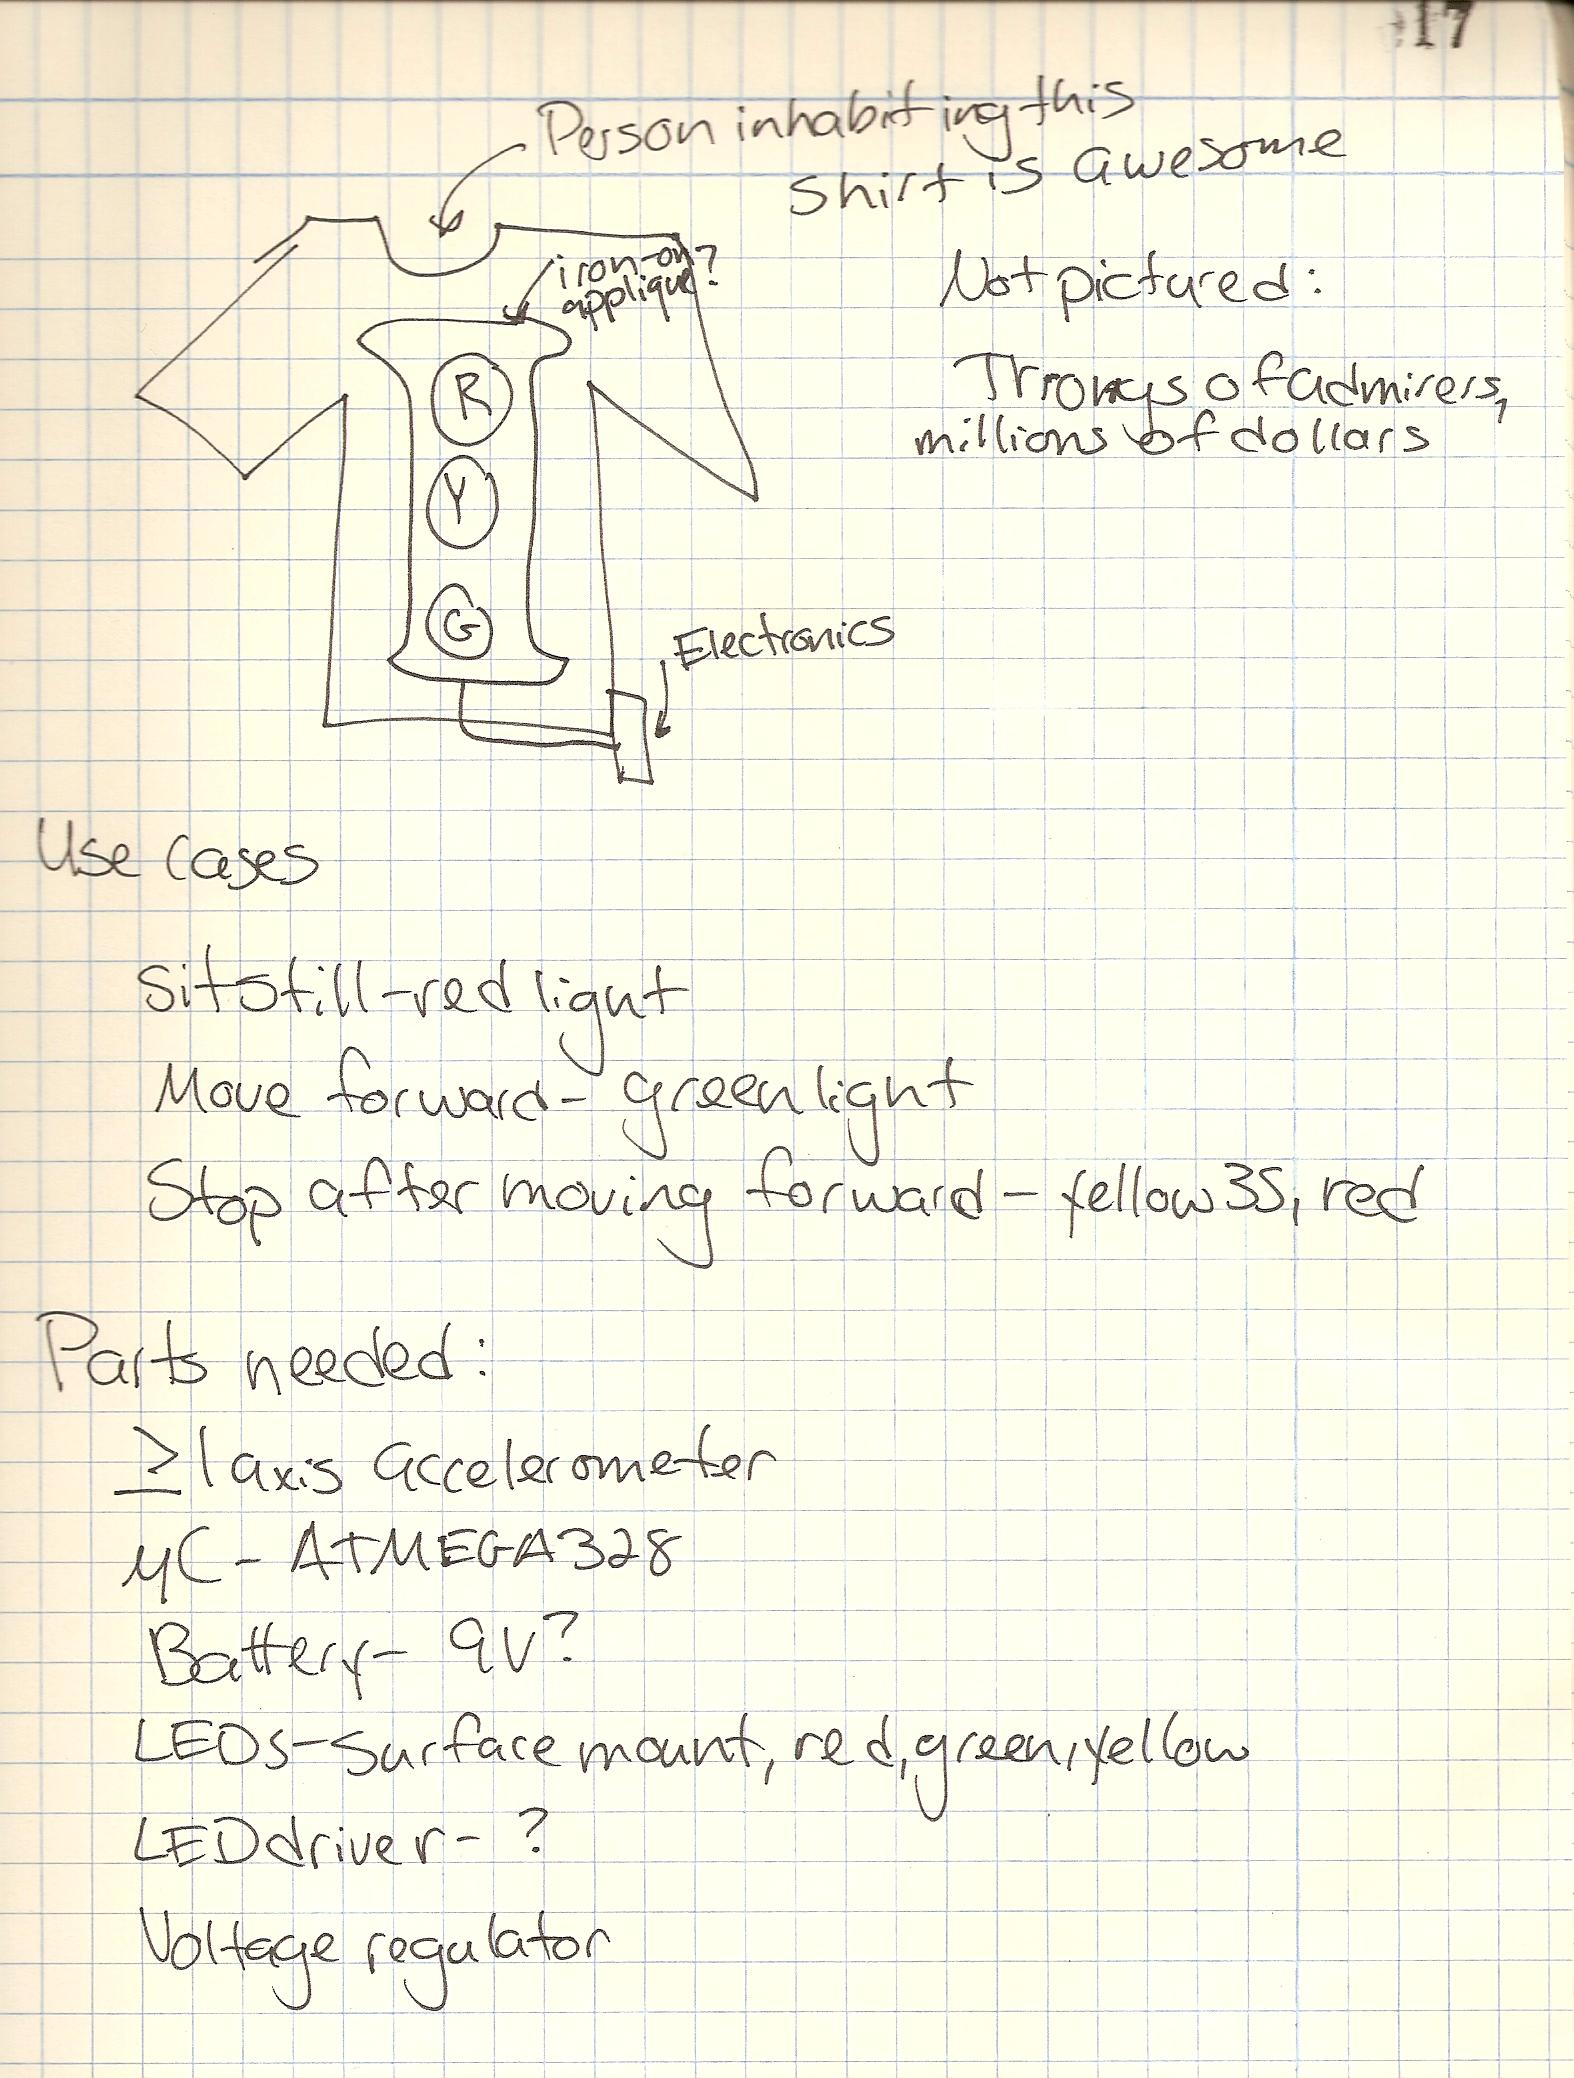 17
Person inhabiting this
shirt is awesome
iron-on
applique?
Not pictured:
Throngs of admirers,
millions of dollars
R
Y
G
Electronics
Use cases
Sit still - red light
Move forward - green light
Stop after moving forward - yellow 3s, red
Parts needed:
≥1 axis accelerometer
μC - ATMEGA328
Battery - 9V?
LEDs - surface mount, red, green, yellow
LED driver - ?
Voltage regulator